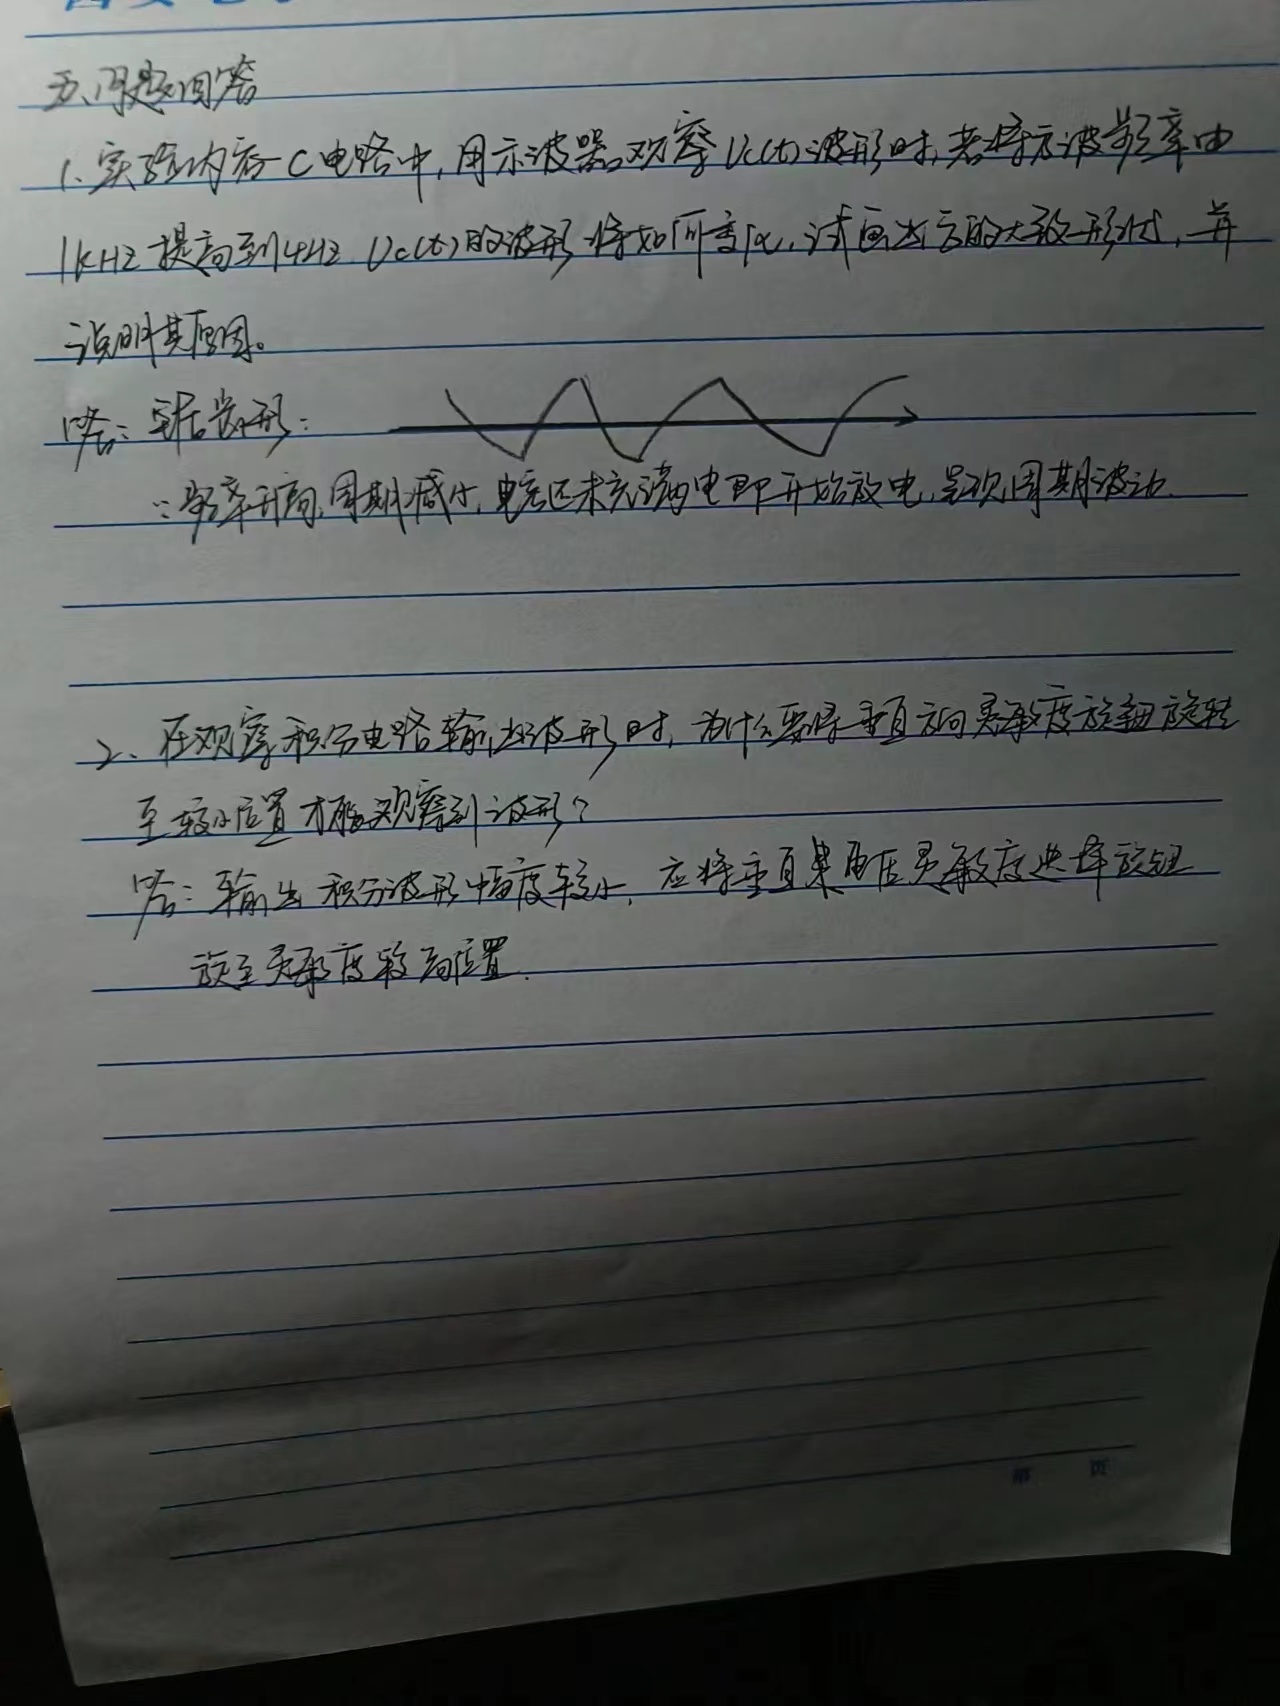 五、问题回答
1. 实验内容一C电路中，用示波器观察Uc(t)波形时，若将方波频率由
1kHz提高到4Hz Uc(t)的波形将如何变化，试画出它的大致形状，并
说明其原因。
答：锯齿形：
∵频率升高，周期减小，电容还未充满电即开始放电，呈现周期波动.
2、在观察积分电路输出波形时，为什么要将垂直方向灵敏度旋钮旋转
至较小位置才能观察到波形？
答：输出积分波形幅度较小，应将垂直 灵敏度选择旋钮
旋至灵敏度较高位置.
第 页